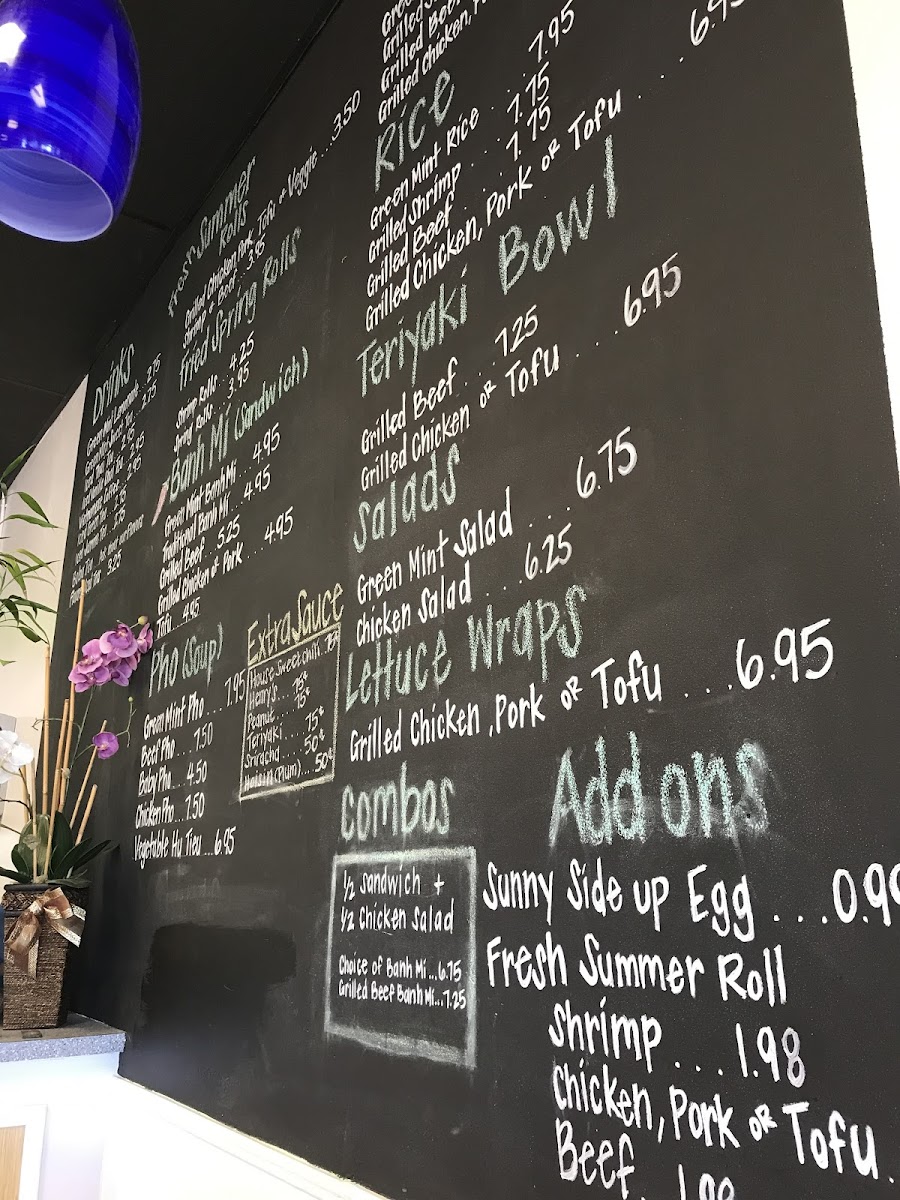 Drinks
Fresh Summer
Rolls
Grilled Chicken, Pork, Tofu or Veggie ...3.50
Shrimp or Beef ... 3.95
Fried Spring Rolls
Shrimp Rolls .. 4.25
Spring Rolls ... 3.95
Banh Mi (Sandwich)
Green Mint Banh Mi ... 4.95
Traditional Banh Mi ... 4.95
Grilled Beef ... 5.25
Grilled Chicken or Pork ... 4.95
Tofu ... 4.95
Pho (Soup)
Green Mint Pho .... 7.95
Beef Pho .... 7.50
Baby Pho .... 4.50
Chicken Pho ... 7.50
Vegetable Hu Tieu ...6.95
Extra Sauce
House Sweet Chili
Henry's ... 75¢
Peanut .... 75¢
Teriyaki .... 75¢
Sriracha .... 50¢
Hoisin (Plum) ... 50¢
Grilled Beef
Grilled Chicken,
Rice
Green Mint Rice .... 7.95
Grilled Shrimp .... 7.75
Grilled Beef ..... 7.75
Grilled Chicken, Pork or Tofu .... 6.95
Teriyaki Bowl
Grilled Beef ... 7.25
Grilled Chicken or Tofu .... 6.95
Salads
Green Mint Salad .... 6.75
Chicken Salad .... 6.25
Lettuce Wraps
Grilled Chicken, Pork or Tofu ... 6.95
Combos
1/2 Sandwich +
1/2 Chicken Salad
Choice of Banh Mi ...6.75
Grilled Beef Banh Mi...7.25
Add ons
Sunny Side up Egg ....0.99
Fresh Summer Roll
Shrimp .... 1.98
Chicken, Pork or Tofu .
Beef. 1.98